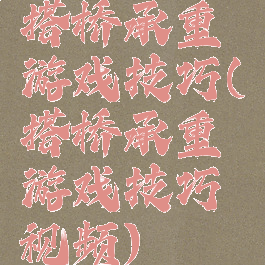 搭桥承重
游戏技巧(
搭桥承重
游戏技巧
视频)